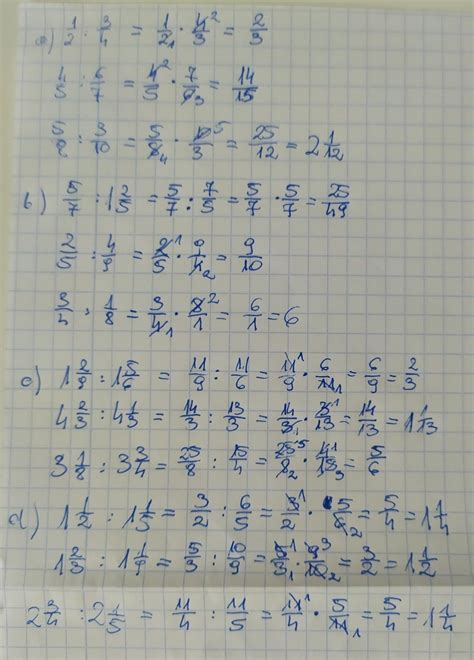 a) 1/2 : 3/4 = 1/2 1 · 4 2/3 = 2/3
4/5 : 6/7 = 4 2/5 · 7/6 3 = 14/15
5/8 : 3/10 = 5/8 4 · 10 5/3 = 25/12 = 2 1/12
b) 5/7 : 1 2/5 = 5/7 : 7/5 = 5/7 · 5/7 = 25/49
2/5 : 4/9 = 2 1/5 · 9/4 2 = 9/10
3/4 : 1/8 = 3/4 1 · 8 2/1 = 6/1 = 6
c) 1 2/9 : 1 5/6 = 11/9 : 11/6 = 11 1/9 · 6/11 1 = 6/9 = 2/3
4 2/3 : 4 1/3 = 14/3 : 13/3 = 14/3 1 · 3 1/13 = 14/13 = 1 1/13
3 1/8 : 3 3/4 = 25/8 : 15/4 = 25 5/8 2 · 4 1/15 3 = 5/6
d) 1 1/2 : 1 1/5 = 3/2 : 6/5 = 3 1/2 · 5/6 2 = 5/4 = 1 1/4
1 2/3 : 1 1/9 = 5/3 : 10/9 = 5 1/3 1 · 9 3/10 2 = 3/2 = 1 1/2
2 3/4 : 2 1/5 = 11/4 : 11/5 = 11 1/4 · 5/11 1 = 5/4 = 1 1/4